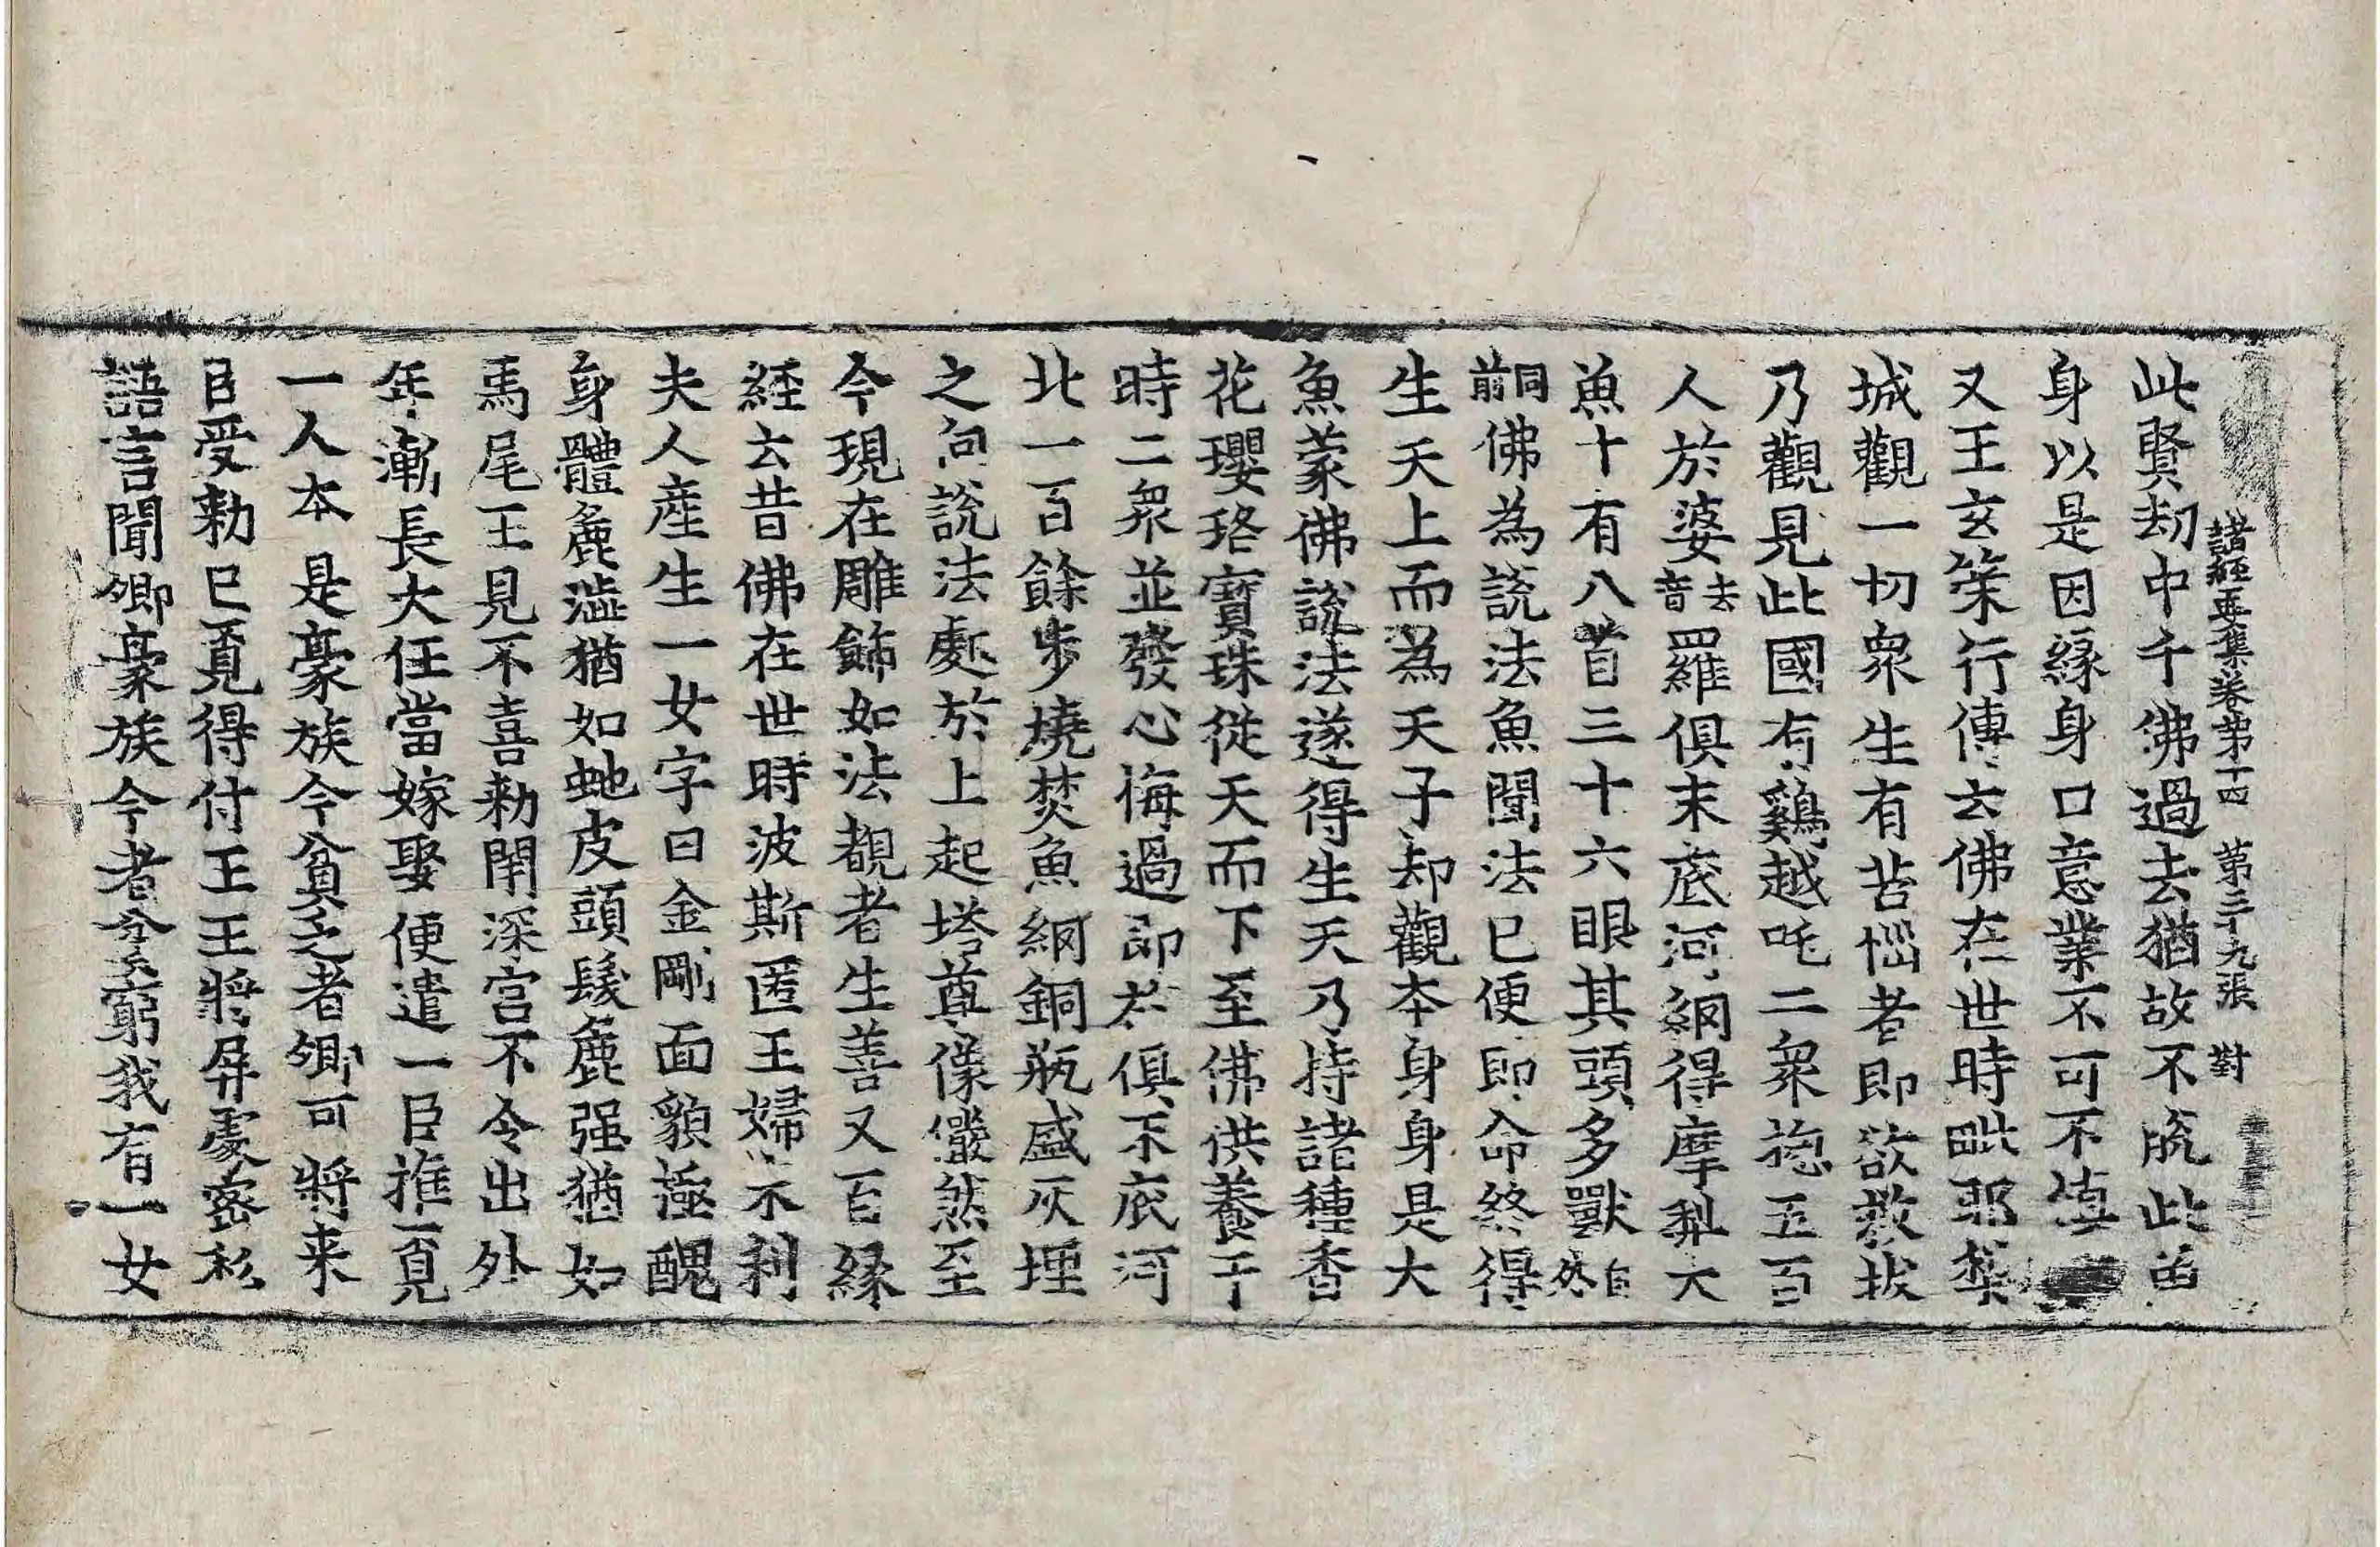 諸經要集卷第十四 第二十九張 對
此賢劫中千佛過去猶故不脫此畜
身以是因緣身口意業不可不慎
又王玄策行傳云佛在世時毗耶棃
城觀一切衆生有苦惱者即欲救拔
乃觀見此國有雞越吒二衆揔五百
人於婆去音羅俱末底河網得摩梨大
魚十有八首三十六眼其頭多獸自然
同前佛為說法魚聞法已便即命終得
生天上而為天子却觀本身身是大
魚蒙佛說法遂得生天乃持諸種香
花瓔珞寶珠從天而下至佛供養于
時二衆並發心悔過即於俱末底河
北一百餘步燒焚魚網銅瓶盛灰埋
之向說法處於上起塔尊像儼然至
今現在雕飾如法覩者生善又百緣
經云昔佛在世時波斯匿王婦末利
夫人產生一女字曰金剛面貌極醜
身體麁澁猶如虵皮頭髮麁强猶如
馬尾王見不喜勑閉深宮不令出外
年漸長大任當嫁娶便遣一臣推覓
一人本是豪族今貧乏者卿可將来
臣受勑已覓得付王王將屏處密私
語言聞卿豪族今者貧窮我有一女